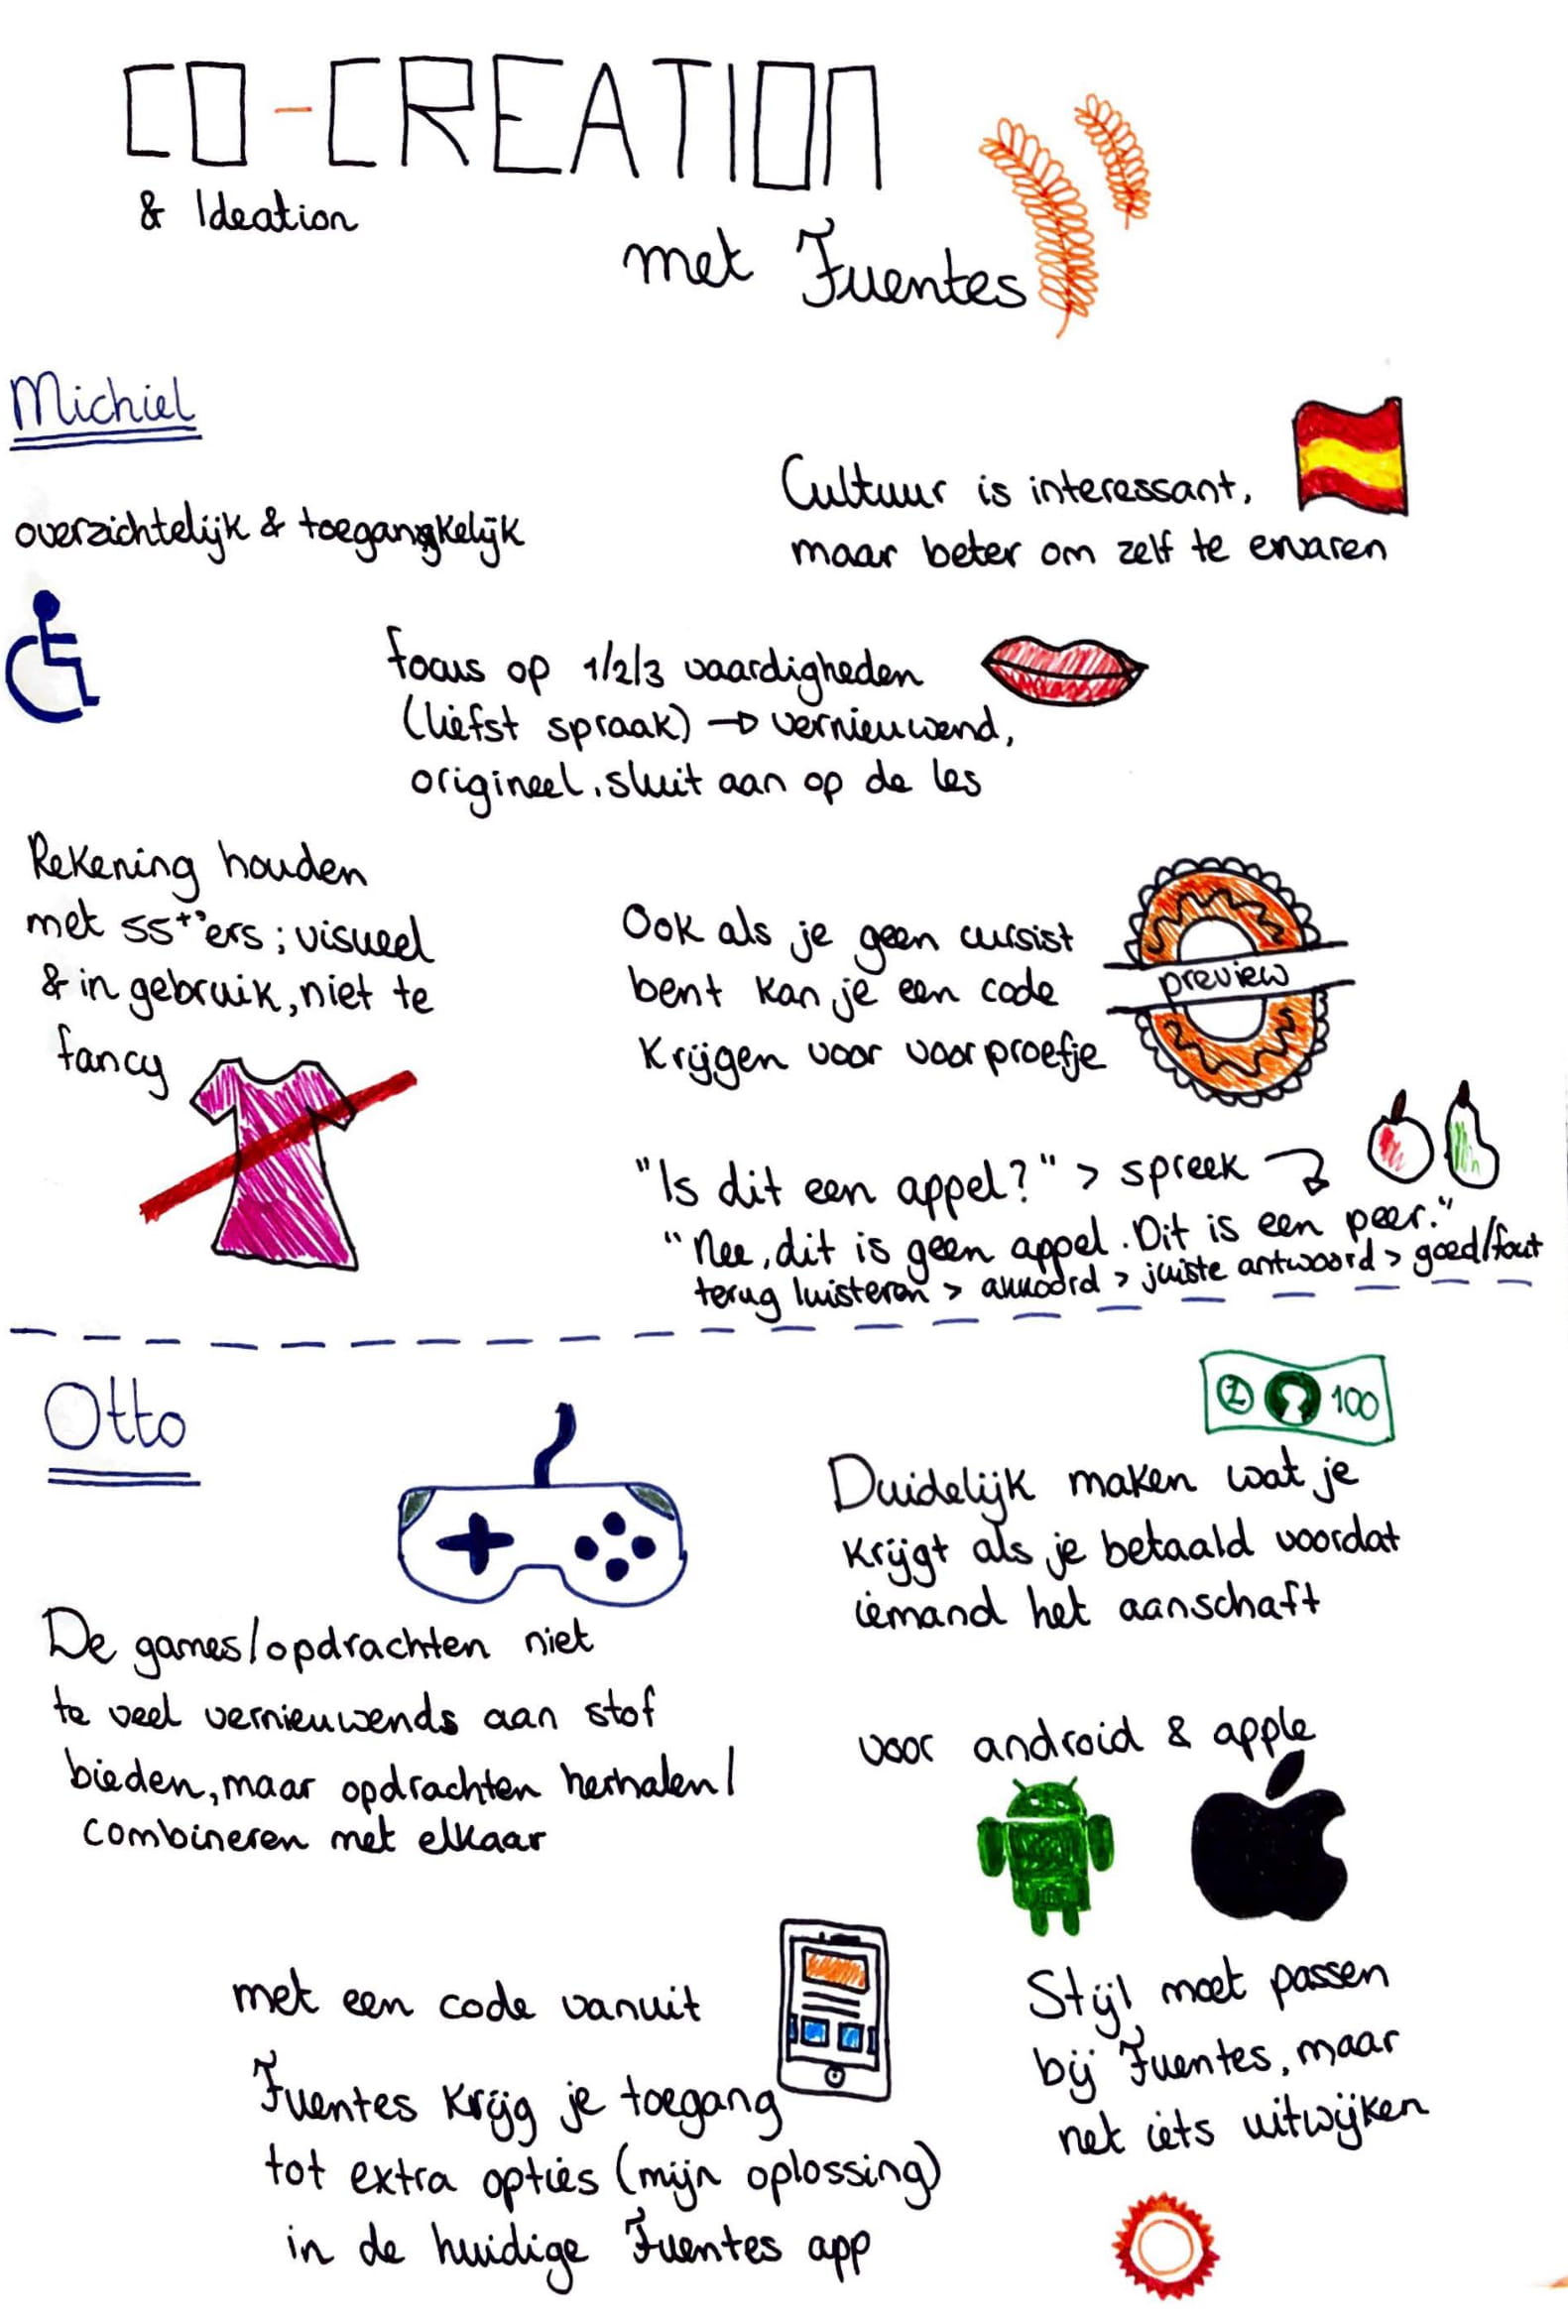 CO-CREATION
& Ideation
met Fuentes
Michiel
overzichtelijk & toegangkelijk
Cultuur is interessant,
maar beter om zelf te ervaren
focus op 1/2/3 vaardigheden
(liefst spraak) → vernieuwend,
origineel, sluit aan op de les
Rekening houden
met 55+'ers; visueel
& in gebruik, niet te
fancy
Ook als je geen cursist
bent kan je een code
krijgen voor voorproefje
preview
"Is dit een appel?" > spreek
"Nee, dit is geen appel. Dit is een peer."
terug luisteren > akkoord > juiste antwoord > goed/fout
Otto
1 100
Duidelijk maken wat je
krijgt als je betaald voordat
iemand het aanschaft
De games/opdrachten niet
te veel vernieuwends aan stof
bieden, maar opdrachten herhalen/
combineren met elkaar
voor android & apple
met een code vanuit
Fuentes krijg je toegang
tot extra opties (mijn oplossing)
in de huidige Fuentes app
Stijl moet passen
bij Fuentes, maar
net iets uitwijken